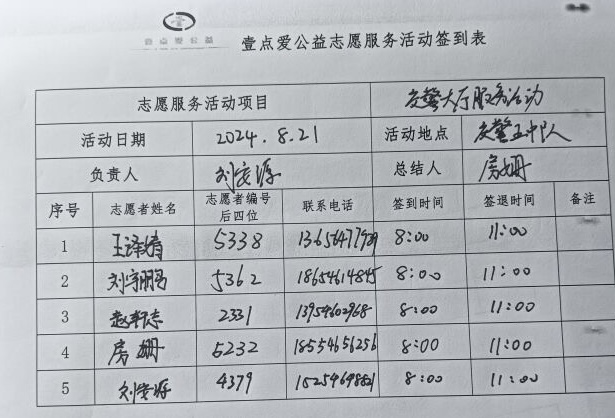 壹点爱公益
壹点爱公益志愿服务活动签到表
志愿服务活动项目 交警大厅服务活动
活动日期 2024.8.21 活动地点 交警五中队
负责人 刘安源 总结人 房姗
序号 志愿者姓名 志愿者编号后四位 联系电话 签到时间 签退时间 备注
1 王泽 5338 8:00 11:00
2 刘宇鹏 5362 18654614845 8:00 11:00
3 志 2331 13954602968 8:00 11:00
4 房姗 5232 18554656256 8:00 11:00
5 刘安源 4379 8:00 11:00